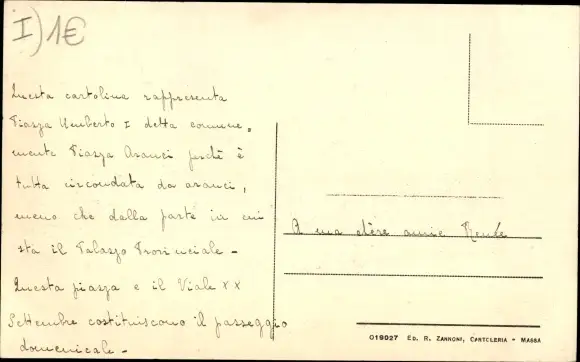 I) 1€
Questa cartolina rappresenta
Piazza Umberto I detta comune=
mente Piazza Aranci perchè è
tutta circondata da aranci,
meno che dalla parte in cui
sta il Palazzo Provinciale -
Questa piazza e il Viale XX
Settembre costituiscono il passeggio
domenicale -
A ma chère amie Renée
019027 ED. R. ZANNONI, CARTOLERIA - MASSA